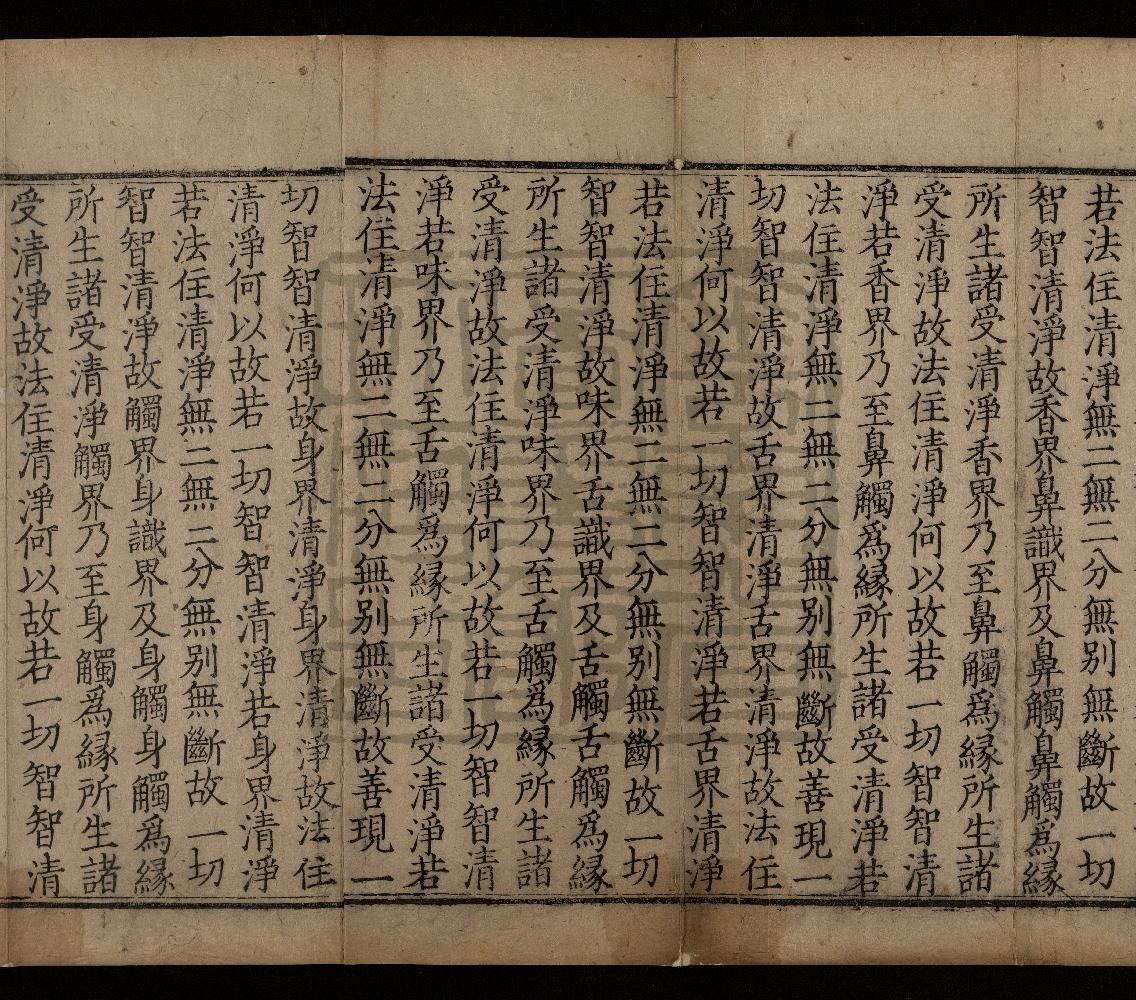 若法住清淨無二無二分無別無斷故一切
智智清淨故香界鼻識界及鼻觸鼻觸爲緣
所生諸受清淨香界乃至鼻觸爲緣所生諸
受清淨故法住清淨何以故若一切智智清
淨若香界乃至鼻觸爲緣所生諸受清淨若
法住清淨無二無二分無別無斷故善現一
切智智清淨故舌界清淨舌界清淨故法住
清淨何以故若一切智智清淨若舌界清淨
若法住清淨無二無二分無別無斷故一切
智智清淨故味界舌識界及舌觸舌觸爲緣
所生諸受清淨味界乃至舌觸爲緣所生諸
受清淨故法住清淨何以故若一切智智清
淨若味界乃至舌觸爲緣所生諸受清淨若
法住清淨無二無二分無別無斷故善現一
切智智清淨故身界清淨身界清淨故法住
清淨何以故若一切智智清淨若身界清淨
若法住清淨無二無二分無別無斷故一切
智智清淨故觸界身識界及身觸身觸爲緣
所生諸受清淨觸界乃至身觸爲緣所生諸
受清淨故法住清淨何以故若一切智智清